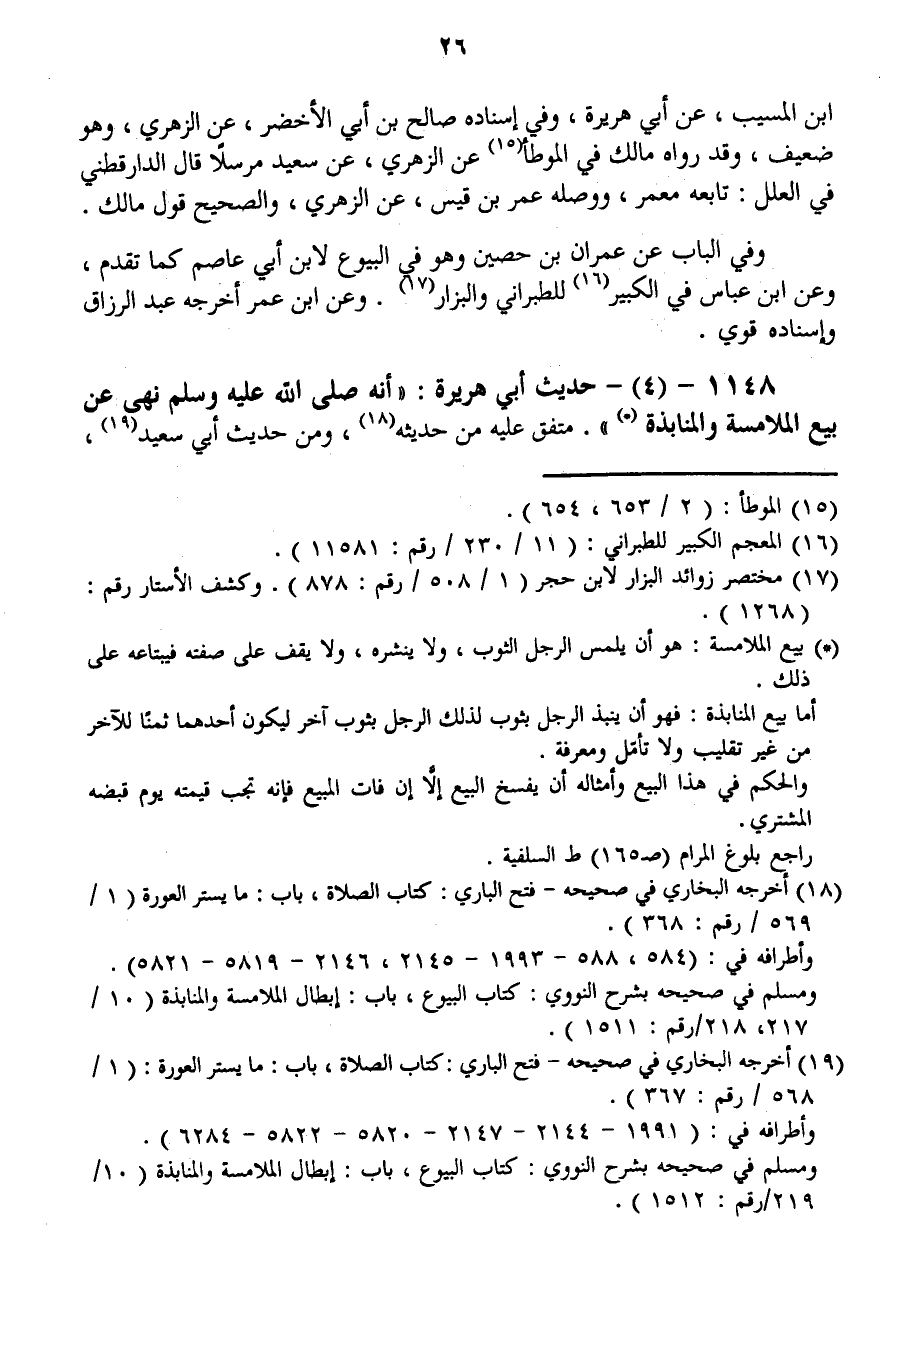 ٢٦
ابن المسيب ، عن أبي هريرة ، وفي إسناده صالح بن أبي الأخضر ، عن الزهري ، وهو
ضعيف ، وقد رواه مالك في الموطأ(١٥) عن الزهري ، عن سعيد مرسلًا قال الدارقطني
في العلل : تابعه معمر ، ووصله عمر بن قيس ، عن الزهري ، والصحيح قول مالك .
وفي الباب عن عمران بن حصين وهو في البيوع لابن أبي عاصم كما تقدم ،
وعن ابن عباس في الكبير(١٦) للطبراني والبزار(١٧) . وعن ابن عمر أخرجه عبد الرزاق
وإسناده قوي .
١١٤٨ – (٤) – حديث أبي هريرة : « أنه صلى الله عليه وسلم نهى عن
بيع الملامسة والمنابذة (*) » . متفق عليه من حديثه(١٨) ، ومن حديث أبي سعيد(١٩) ،
(١٥) الموطأ : ( ٢ / ٦٥٣ ، ٦٥٤ ) .
(١٦) المعجم الكبير للطبراني : ( ١١ / ٢٣٠ / رقم : ١١٥٨١ ) .
(١٧) مختصر زوائد البزار لابن حجر ( ١ / ٥٠٨ / رقم : ٨٧٨ ) . وكشف الأستار رقم :
( ١٢٦٨ ) .
(*) بيع الملامسة : هو أن يلمس الرجل الثوب ، ولا ينشره ، ولا يقف على صفته فيبتاعه على
ذلك .
أما بيع المنابذة : فهو أن ينبذ الرجل بثوب لذلك الرجل بثوب آخر ليكون أحدهما ثمنًا للآخر
من غير تقليب ولا تأمّل ومعرفة .
والحكم في هذا البيع وأمثاله أن يفسخ البيع إلّا إن فات المبيع فإنه تجب قيمته يوم قبضه
المشتري .
راجع بلوغ المرام (صـ١٦٥) ط السلفية .
(١٨) أخرجه البخاري في صحيحه – فتح الباري : كتاب الصلاة ، باب : ما يستر العورة ( ١ /
٥٦٩ / رقم : ٣٦٨ ) .
وأطرافه في : (٥٨٤ ، ٥٨٨ – ١٩٩٣ – ٢١٤٥ ، ٢١٤٦ – ٥٨١٩ – ٥٨٢١) .
ومسلم في صحيحه بشرح النووي : كتاب البيوع ، باب : إبطال الملامسة والمنابذة ( ١٠ /
٢١٧، ٢١٨/رقم : ١٥١١ ) .
(١٩) أخرجه البخاري في صحيحه – فتح الباري : كتاب الصلاة ، باب : ما يستر العورة : ( ١ /
٥٦٨ / رقم : ٣٦٧ ) .
وأطرافه في : ( ١٩٩١ – ٢١٤٤ – ٢١٤٧ – ٥٨٢٠ – ٥٨٢٢ – ٦٢٨٤ ) .
ومسلم في صحيحه بشرح النووي : كتاب البيوع ، باب : إبطال الملامسة والمنابذة ( ١٠/
٢١٩/رقم : ١٥١٢ ) .